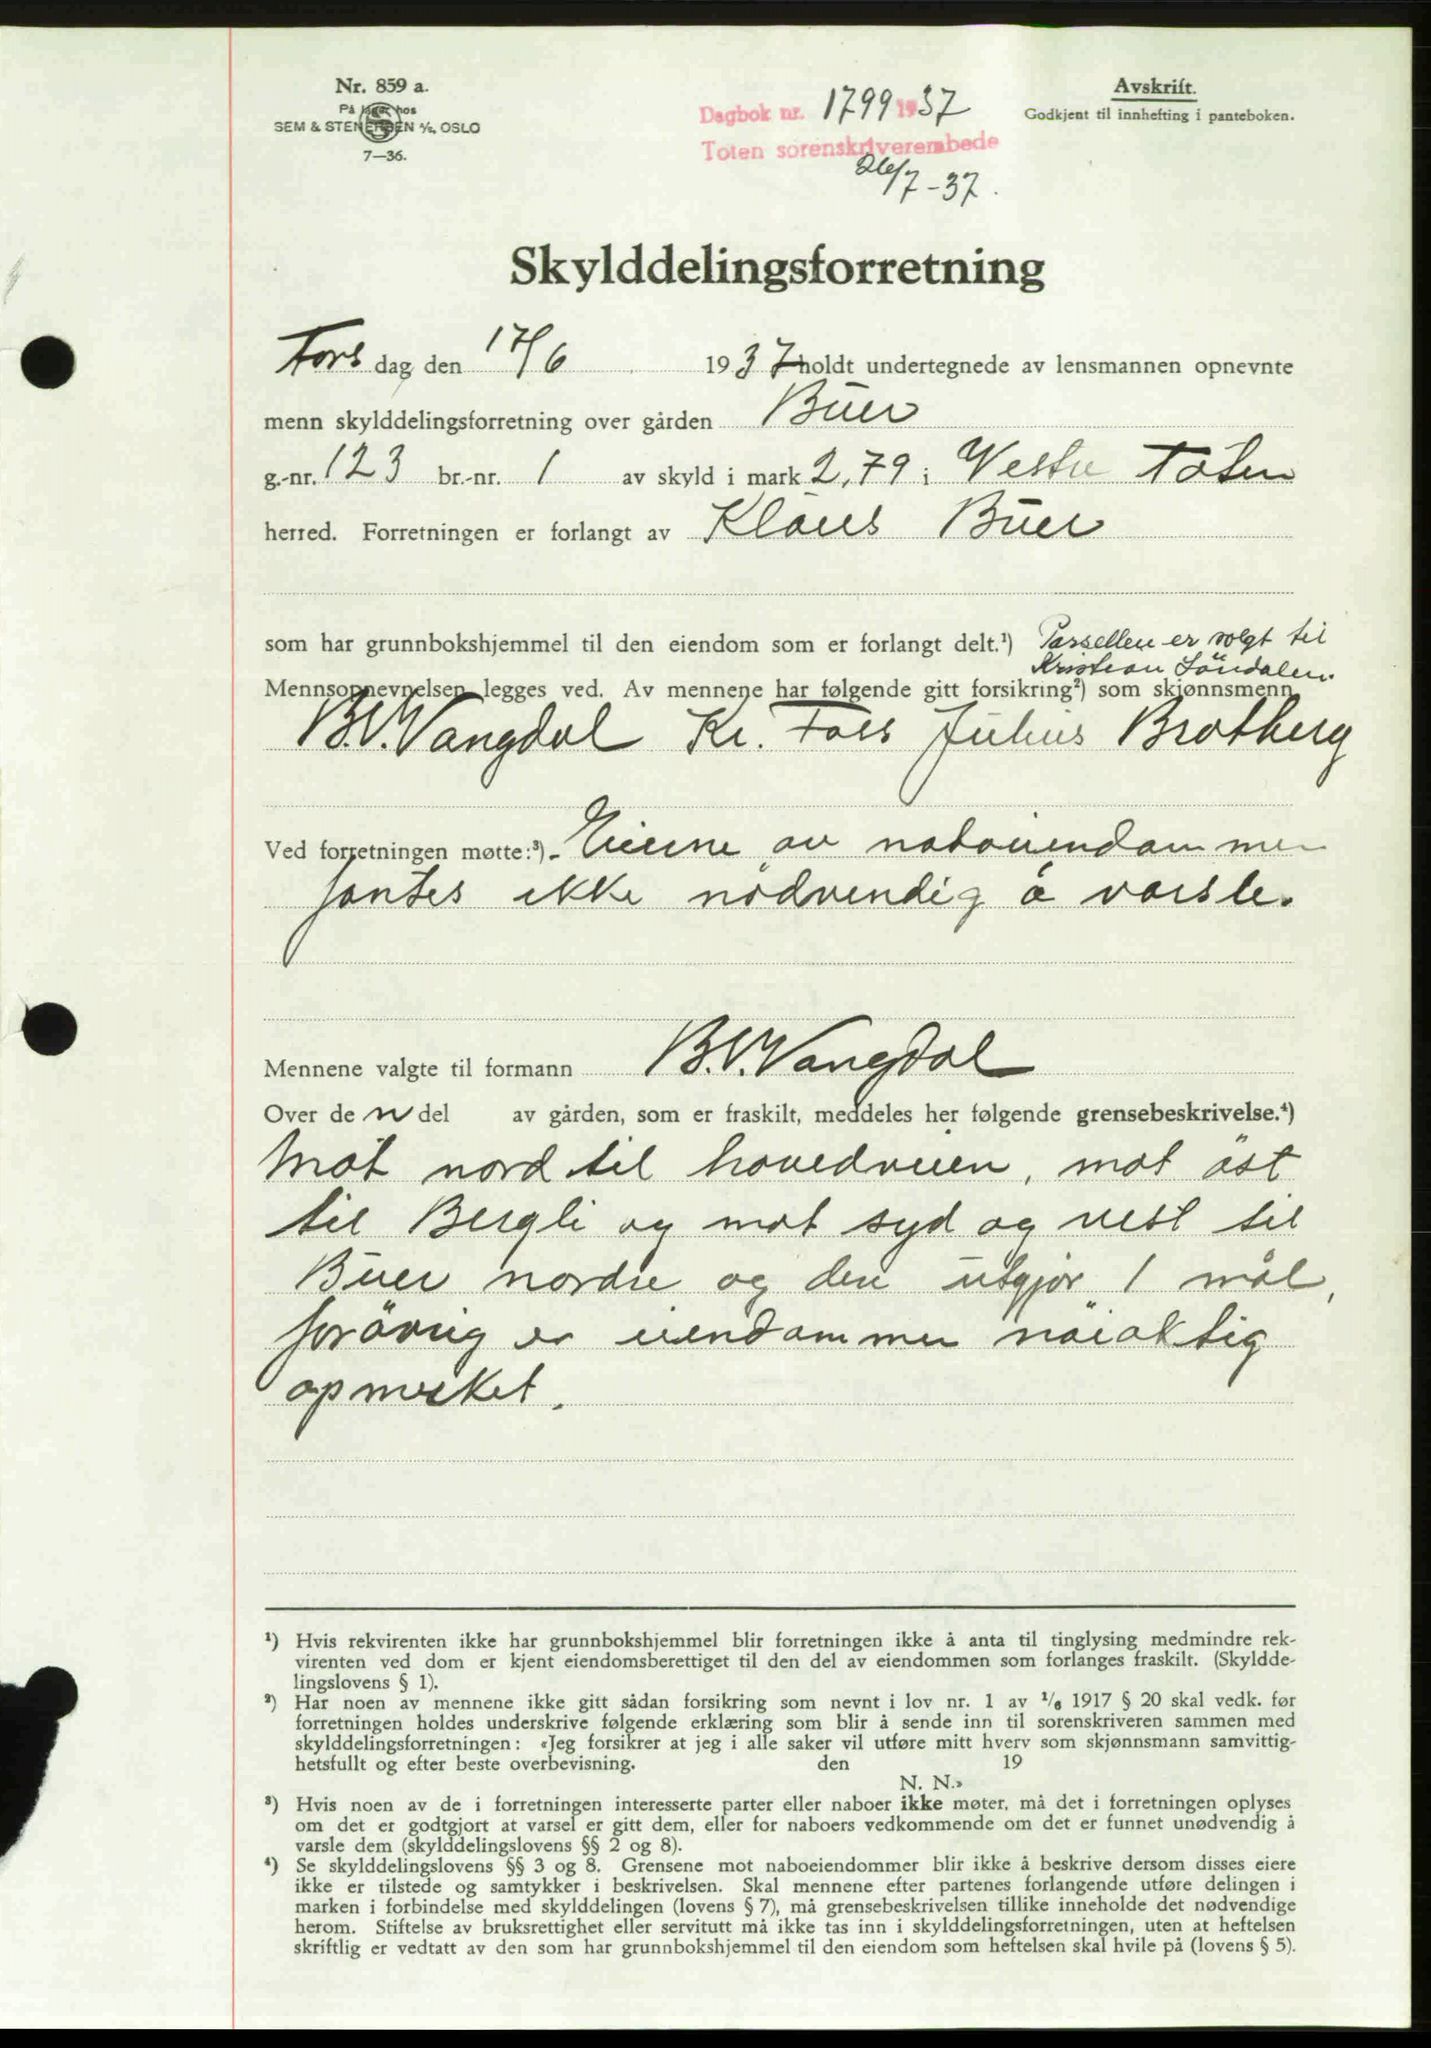 Nr. 859 a.
På lager hos
SEM & STENERSEN A/S, OSLO
7—36.
Dagbok nr. 1799 1937
Toten sorenskriverembede
26/7-37.
Avskrift.
Godkjent til innhefting i panteboken.
Skylddelingsforretning
Tors dag den 17/6 1937 holdt undertegnede av lensmannen opnevnte
menn skylddelingsforretning over gården Buer
g.-nr. 123 br.-nr. 1 av skyld i mark 2,79 i Vestre Toten
herred. Forretningen er forlangt av Klaus Buer
som har grunnbokshjemmel til den eiendom som er forlangt delt.¹) Parsellen er solgt til
Kristian Löndalen.
Mennsopnevnelsen legges ved. Av mennene har følgende gitt forsikring²) som skjønnsmenn
B.V. Vangdal Kr. Foss Julius Brotberg
Ved forretningen møtte:³) - Eierne av naboeiendommen
fantes ikke nödvendig å varsle.
Mennene valgte til formann B.V. Vangdal
Over de n del av gården, som er fraskilt, meddeles her følgende grensebeskrivelse.⁴)
Mot nord til hovedveien, mot öst
til Bergli og mot syd og vest til
Buer nordre og den utgjör 1 mål,
forövrig er eiendommen nöiaktig
opmerket.
¹) Hvis rekvirenten ikke har grunnbokshjemmel blir forretningen ikke å anta til tinglysing medmindre rek-
virenten ved dom er kjent eiendomsberettiget til den del av eiendommen som forlanges fraskilt. (Skyldde-
lingslovens § 1).
²) Har noen av mennene ikke gitt sådan forsikring som nevnt i lov nr. 1 av 1/6 1917 § 20 skal vedk. før
forretningen holdes underskrive følgende erklæring som blir å sende inn til sorenskriveren sammen med
skylddelingsforretningen: «Jeg forsikrer at jeg i alle saker vil utføre mitt hverv som skjønnsmann samvittig-
hetsfullt og efter beste overbevisning. den 19
N. N.»
³) Hvis noen av de i forretningen interesserte parter eller naboer ikke møter, må det i forretningen oplyses
om det er godtgjort at varsel er gitt dem, eller for naboers vedkommende om det er funnet unødvendig å
varsle dem (skylddelingslovens §§ 2 og 8).
⁴) Se skylddelingslovens §§ 3 og 8. Grensene mot naboeiendommer blir ikke å beskrive dersom disses eiere
ikke er tilstede og samtykker i beskrivelsen. Skal mennene efter partenes forlangende utføre delingen i
marken i forbindelse med skylddelingen (lovens § 7), må grensebeskrivelsen tillike inneholde det nødvendige
herom. Stiftelse av bruksrettighet eller servitutt må ikke tas inn i skylddelingsforretningen, uten at heftelsen
skriftlig er vedtatt av den som har grunnbokshjemmel til den eiendom som heftelsen skal hvile på (lovens § 5).